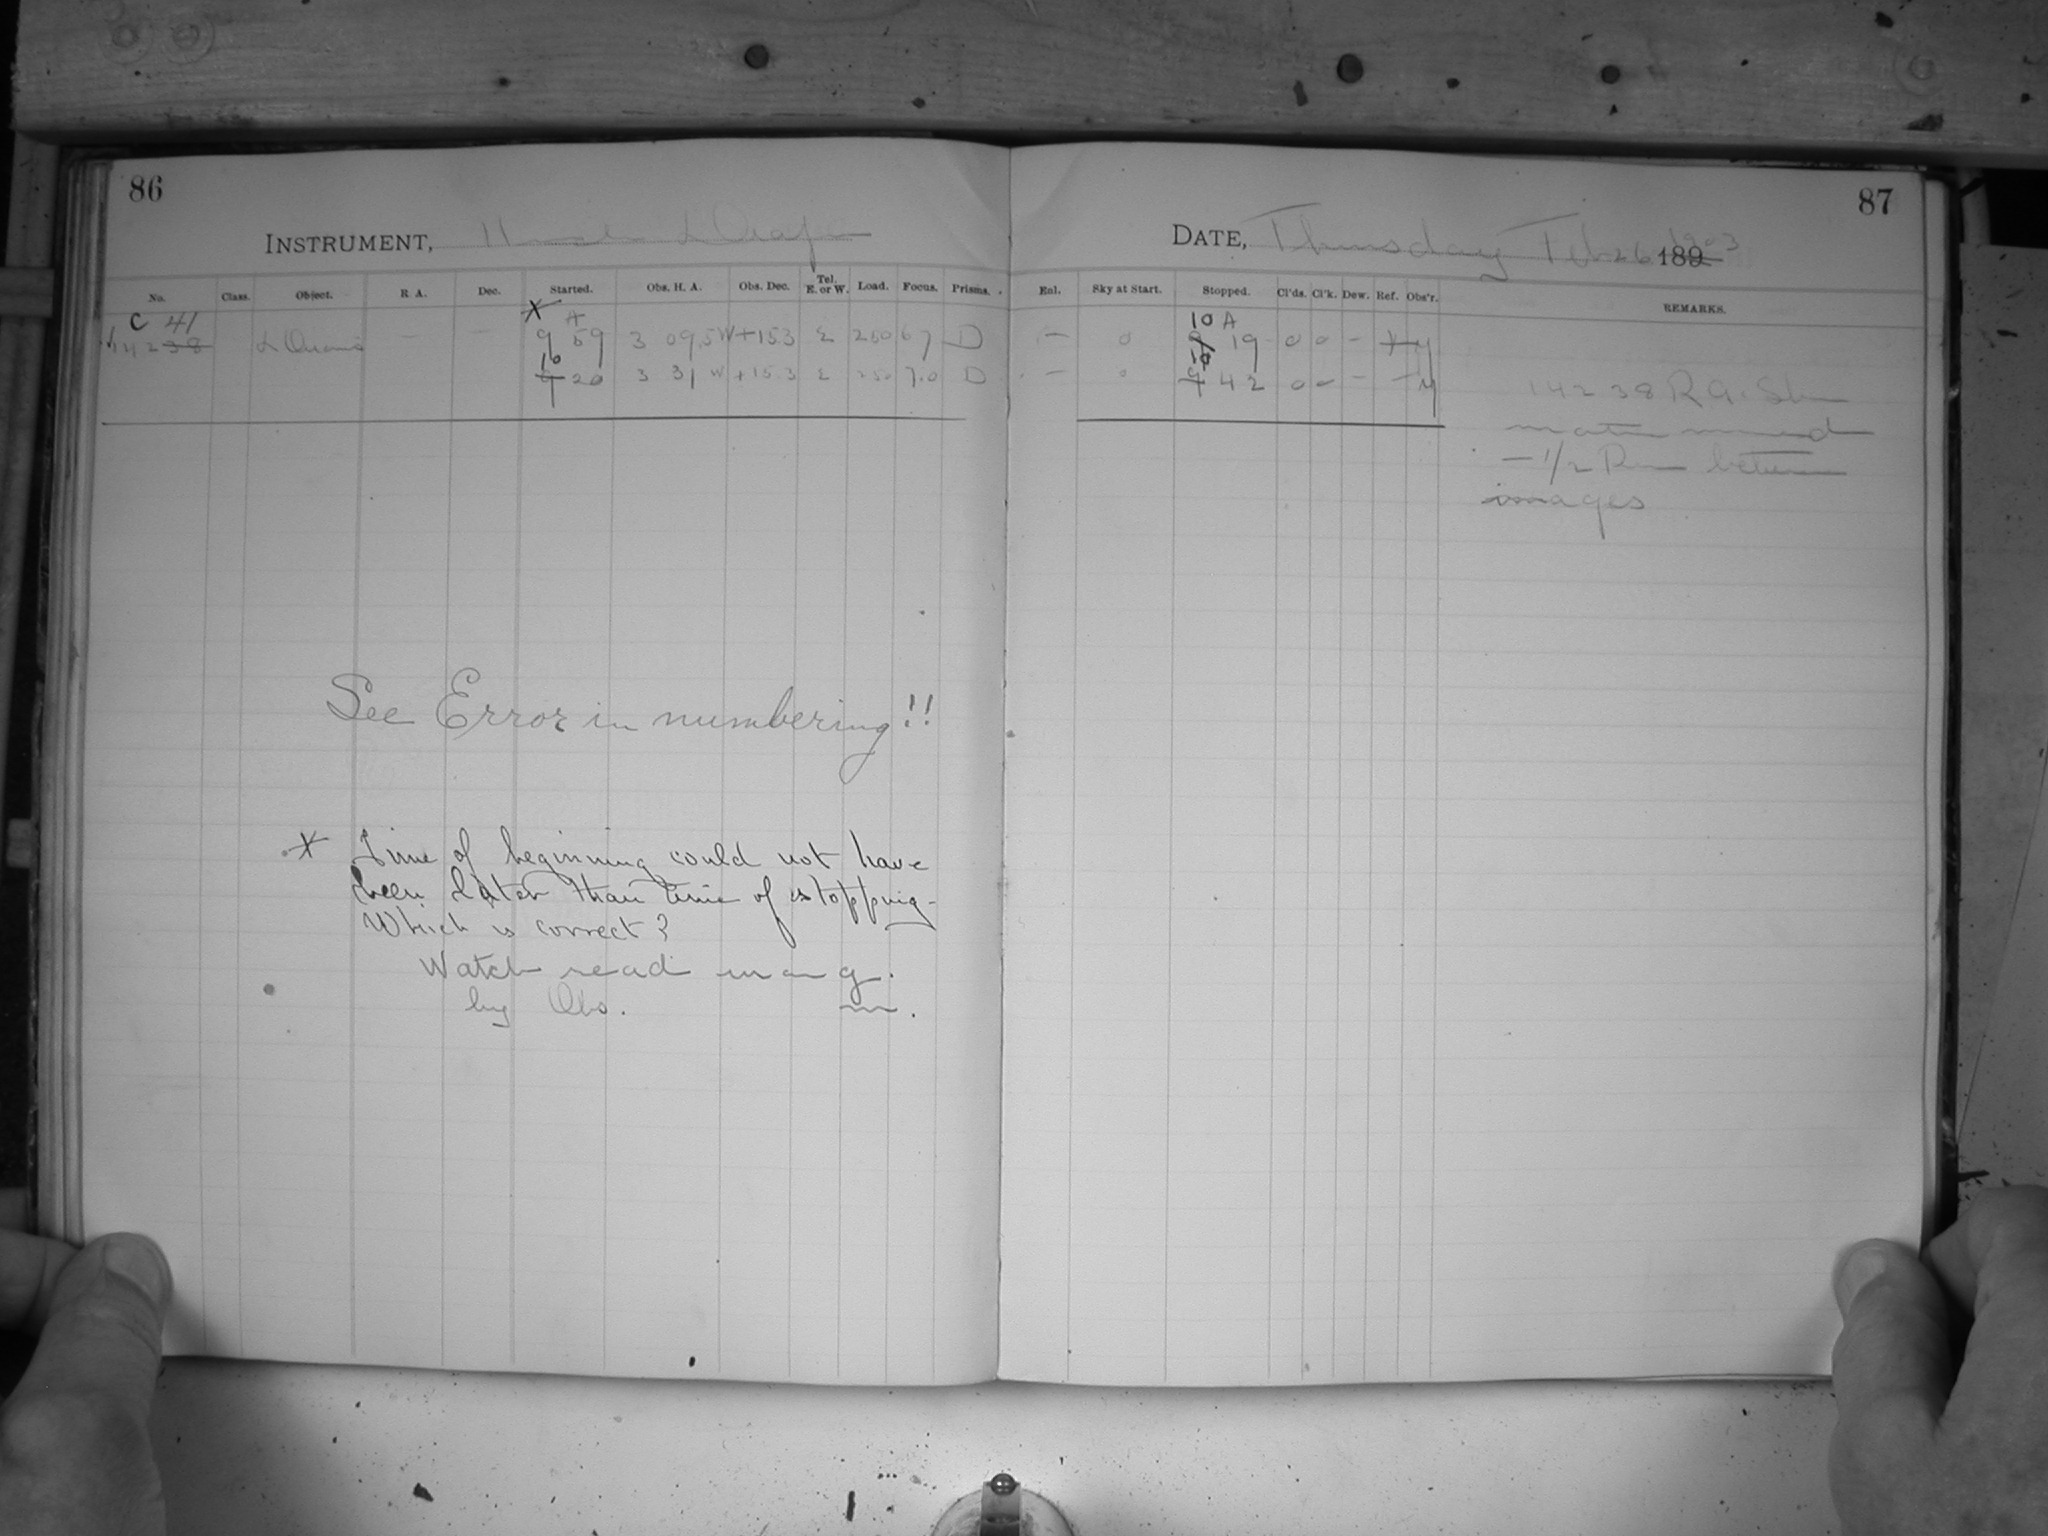 86
87
INSTRUMENT,
DATE, Thursday Feb 26 1903 189
No. Class. Object. R A. Dec. Started. Obs. H. A. Obs. Dec. Tel. E. or W. Load. Focus. Prisms.
Enl. Sky at Start. Stopped. Cl'ds. Cl'k. Dew. Ref. Obs'r. REMARKS.
C 41 * A 10 A
14238 9 59 3 09.5 W +15.3 E 250 67 D — 0 9 19 0 0 —
10 10
9 20 3 31 W +15.3 E 250 7.0 D — 0 9 42 0 0 — — M
14238 R 9.
— 1/2 between
images
See Error in numbering!!
* Time of beginning could not have
been later than time of stopping—
Which is correct?
Watch read
by Obs. m.